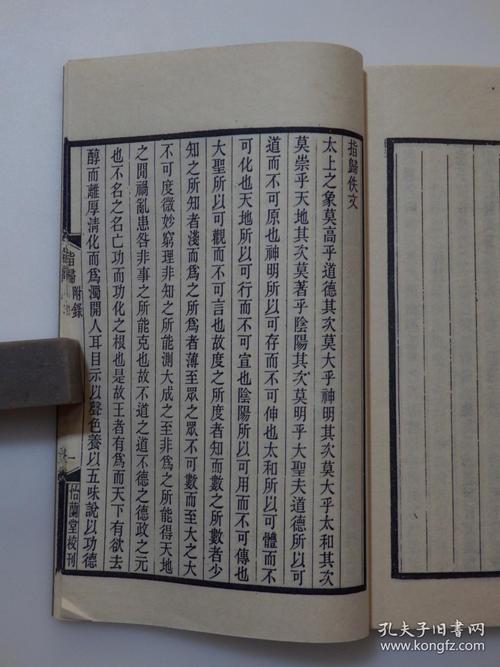 指歸佚文
太上之象莫高乎道德其次莫大乎神明其次莫大乎太和其次
莫崇乎天地其次莫著乎陰陽其次莫明乎大聖夫道德所以可
道而不可原也神明所以可存而不可伸也太和所以可體而不
可化也天地所以可行而不可宣也陰陽所以可用而不可傳也
大聖所以可觀而不可言也故度之所度者知而數之所數者少
知之所知者淺而爲之所爲者薄至眾之眾不可數而至大之大
不可度微妙窮理非知之所能測大成之至非爲之所能得天地
之閒禍亂患咎非事之所能克也故不道之道不德之德政之元
也不名之名亡功而功化之根也是故王者有爲而天下有欲去
醇而離厚清化而爲濁開人耳目示以聲色養以五味說以功德
指歸 附錄
一
怡蘭堂校刊
孔夫子旧书网
www.kongfz.com